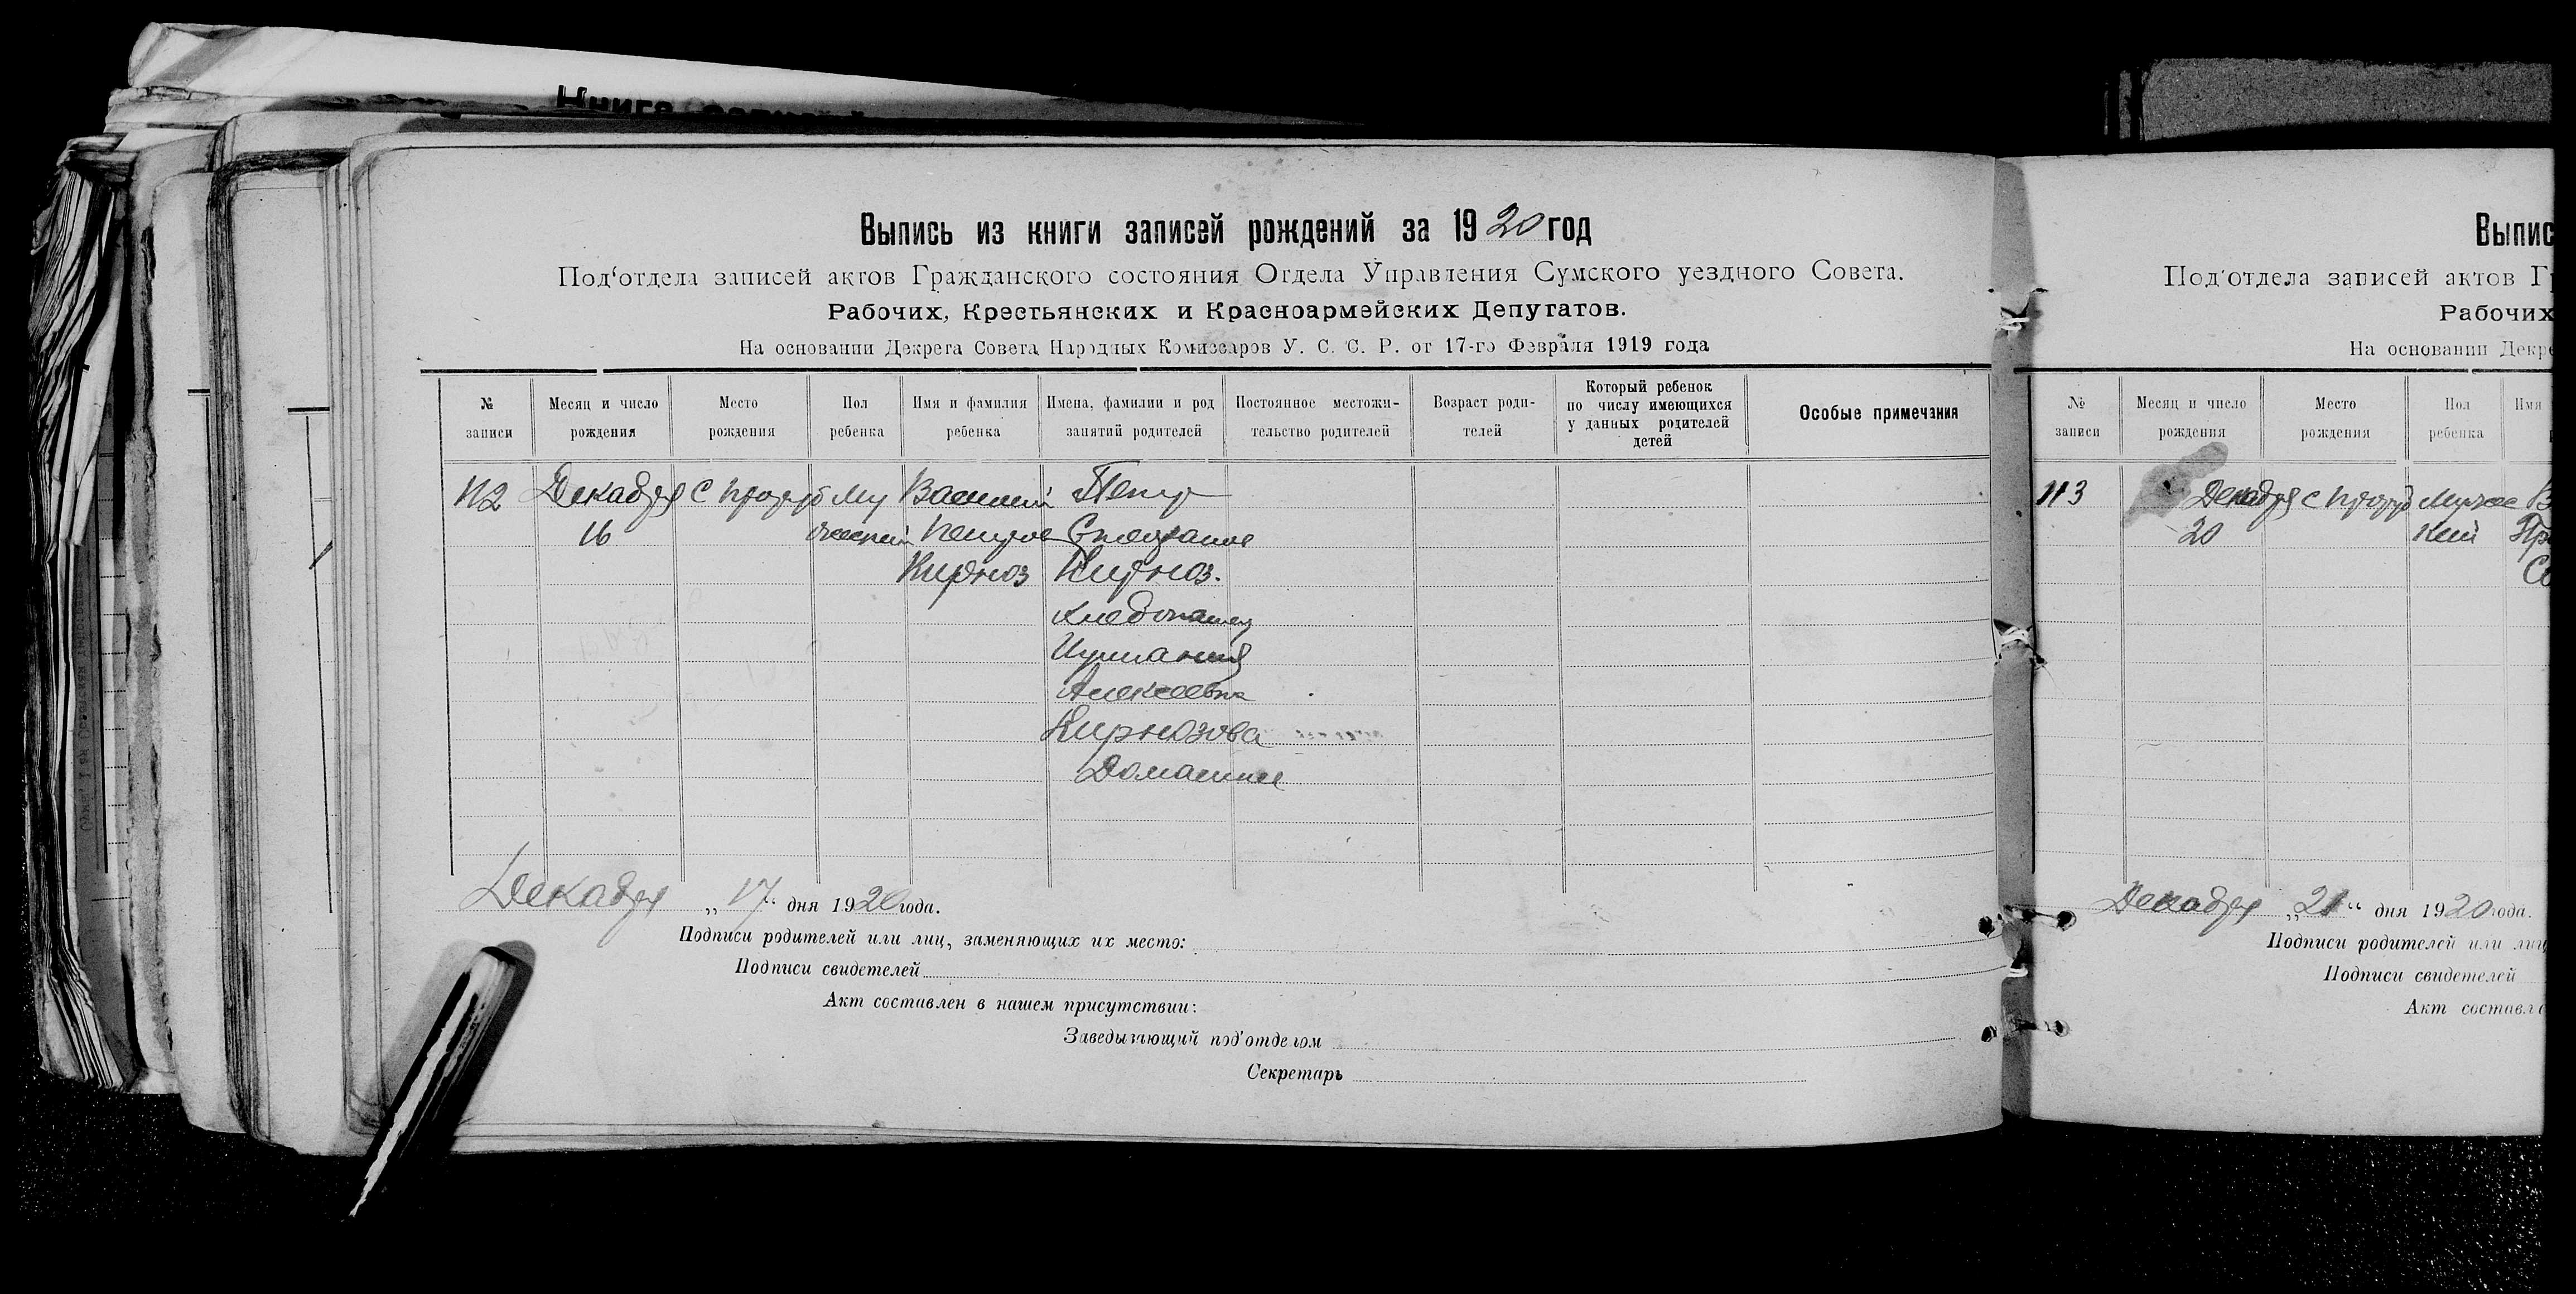 Книга записей
Выпись из книги записей рождений за 1920 год
Под‘отдела записей актов Гражданского состояния Отдела Управления Сумского уездного Совета.
Рабочих, Крестьянских и Красноармейских Депутатов.
На основании Декрета Совета Народных Комиссаров У. С. С. Р. от 17-го Февраля 1919 года
№ записи
Месяц и число рождения
Место рождения
Пол ребенка
Имя и фамилия ребенка
Имена, фамилии и род занятий родителей
Постоянное местожительство родителей
Возраст родителей
Который ребенок по числу имеющихся у данных родителей детей
Особые примечания
112 Декабря с Му Василий Петр
16 жеский
Кирноз Кирноз.
Хлебопашец
Алексеевна
Кирнозова
Домашнее
Декабря „17“ дня 1920 года.
Подписи родителей или лиц, заменяющих их место:
Подписи свидетелей
Акт составлен в нашем присутствии:
Заведывающий под‘отделом
Секретарь
Выпис
Под‘отдела записей актов Гр
Рабочих
На основании Декре
№ записи
Месяц и число рождения
Место рождения
Пол ребенка
Имя
113 Декабря с Мужс В
20 кий
Декабря „21“ дня 1920 года.
Подписи родителей или лиц
Подписи свидетелей
Акт составле